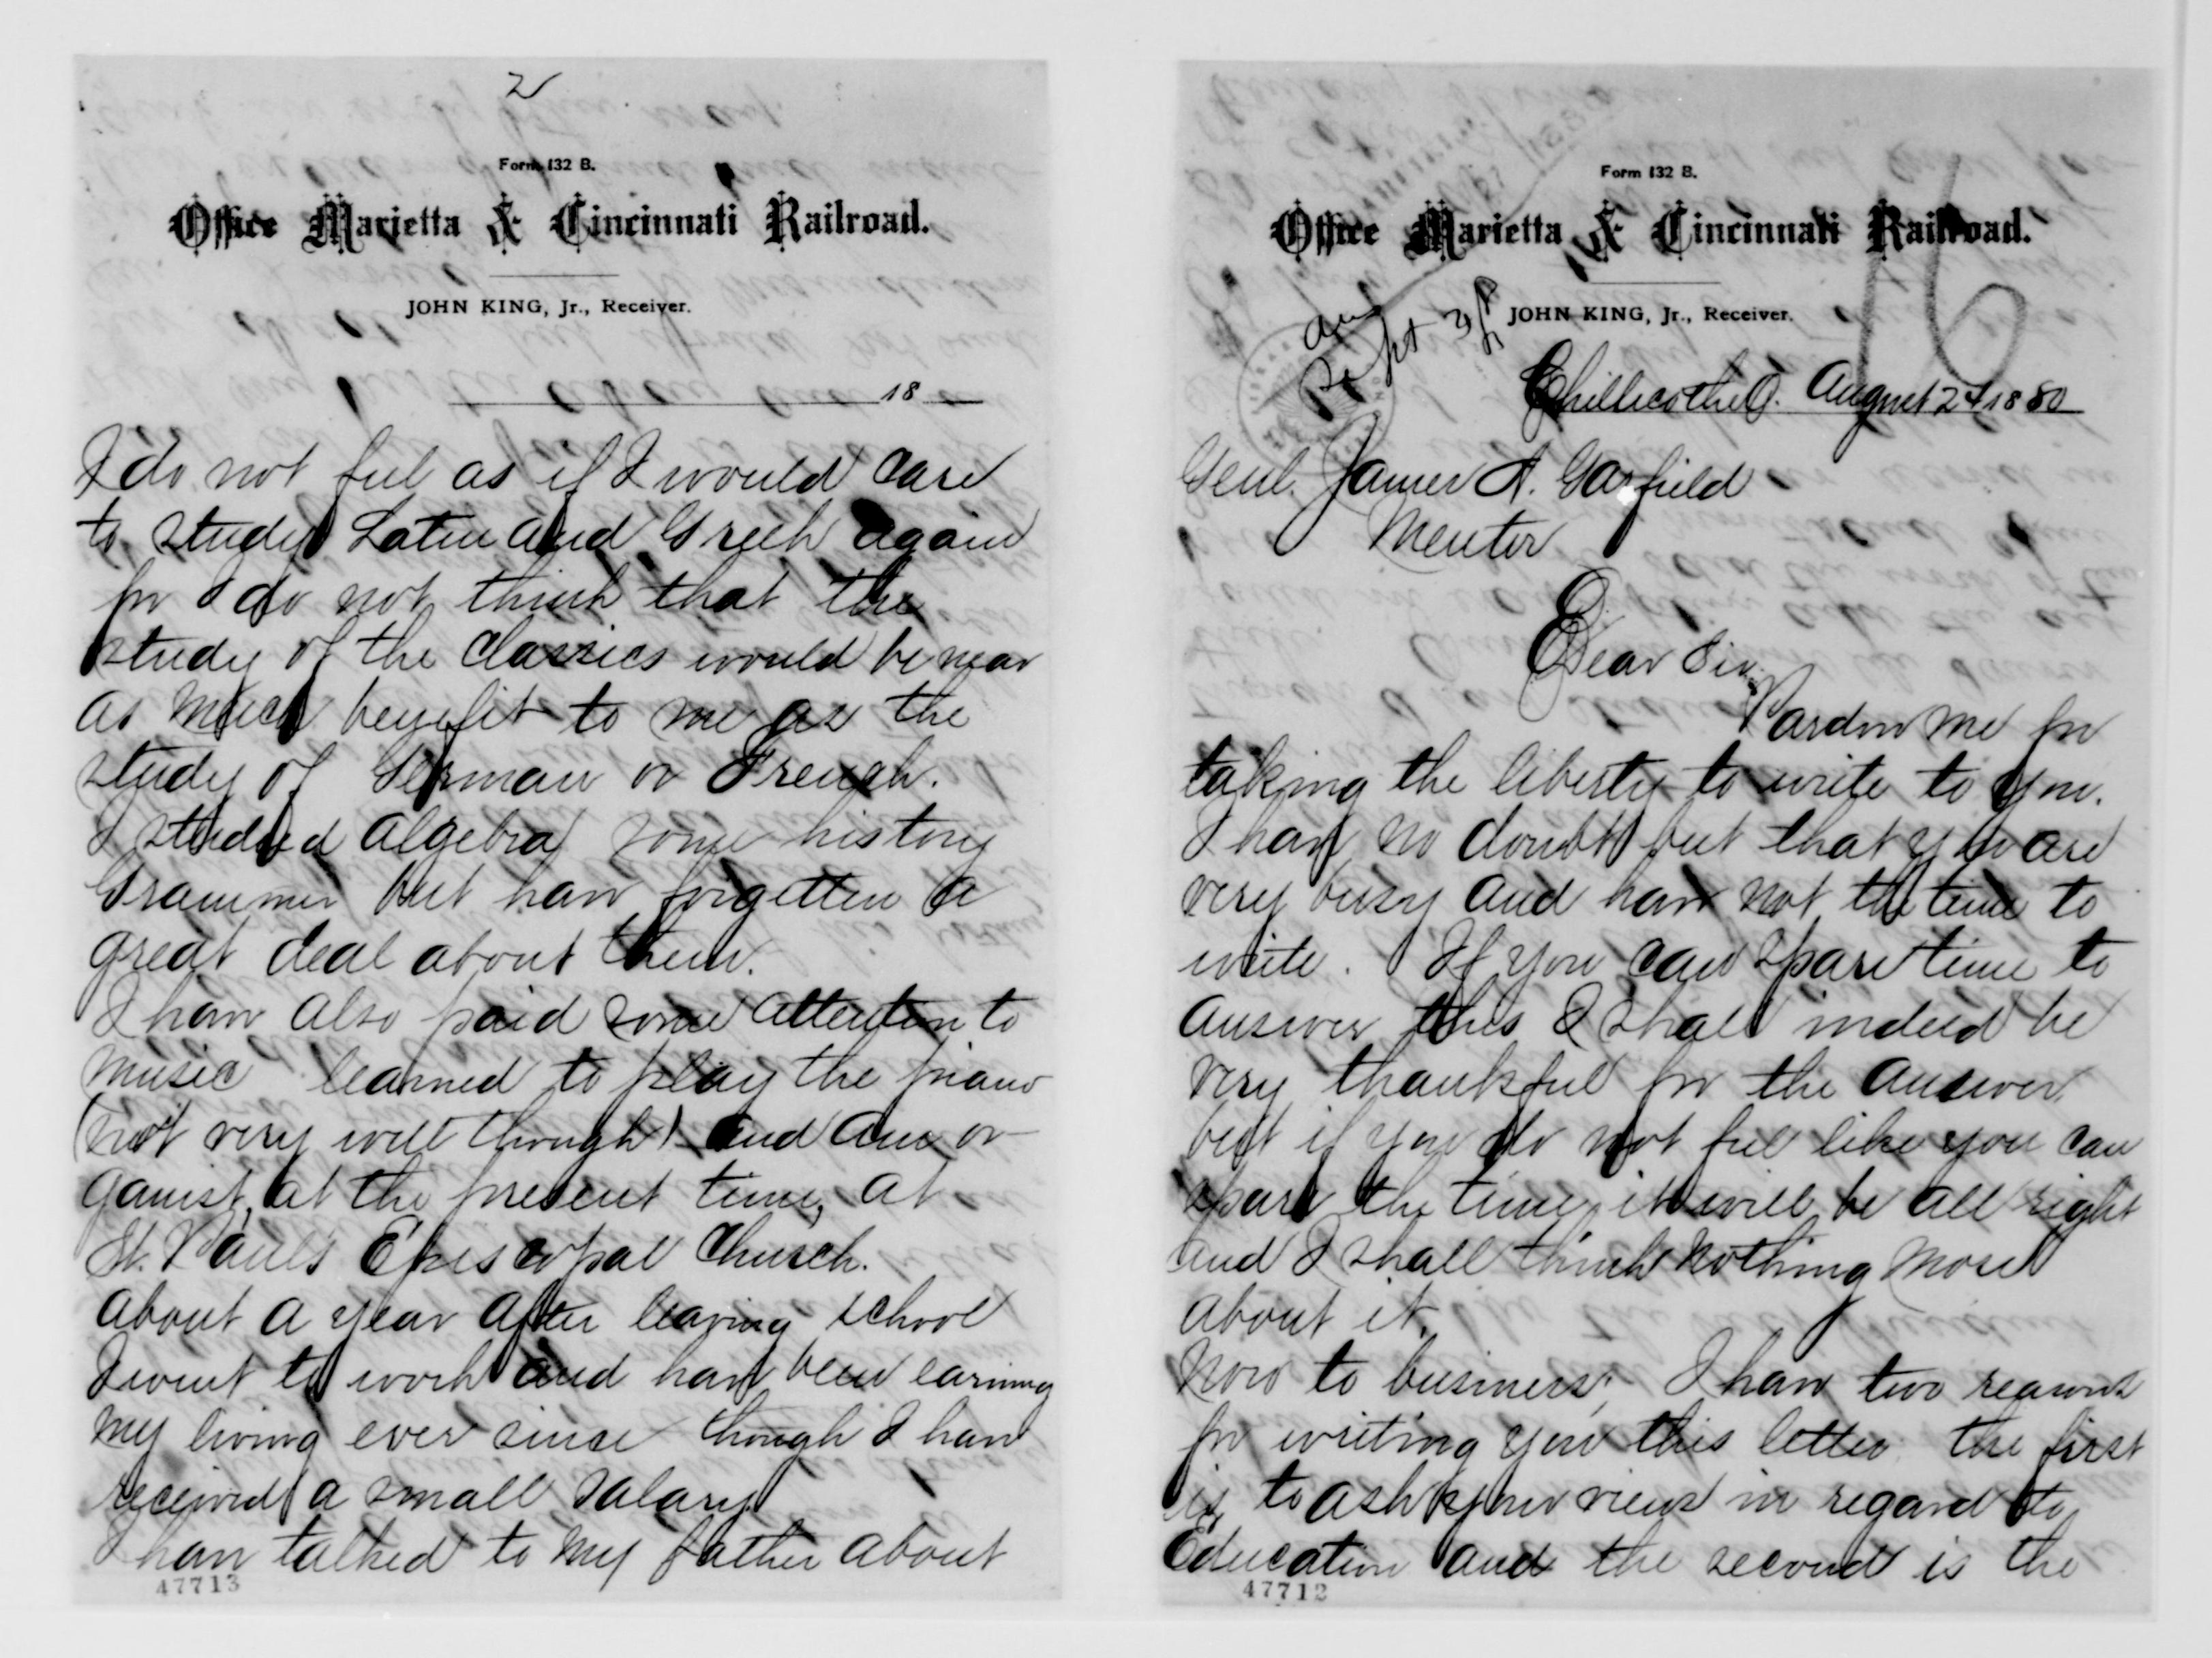 2
Form 132 B.
Office Marietta & Cincinnati Railroad.
JOHN KING, Jr., Receiver.
18
I do not feel as if I would care
to study Latin and Greek again
for I do not think that the
study of the classics would be near
as much benefit to me as the
study of German or French.
I studied algebra some history
Grammer but have forgotten a
great deal about them.
I have also paid some attention to
music learned to play the piano
(not very well though) and am or-
ganist, at the present time, at
St. Pauls Episcopal Church.
About a year after leaving school
I went to work and have been earning
my living ever since though I have
received a small salary
I have talked to my father about
47713
Form 132 B.
Office Marietta & Cincinnati Railroad.
JOHN KING, Jr., Receiver.
16
Sept 3/
Chillicothe O. August 24 1880
Genl. James A. Garfield
Mentor
Dear Sir,
Pardon me for
taking the liberty to write to you.
I have no doubt but that you are
very busy and have not the time to
write. If you can spare time to
answer this I shall indeed be
very thankful for the answer
but if you do not feel like you can
spare the time, it will be all right
and I shall think nothing more
about it.
Now to business; I have two reasons
for writing you this letter the first
is, to ask your views in regard to
Education and the second is the
47712